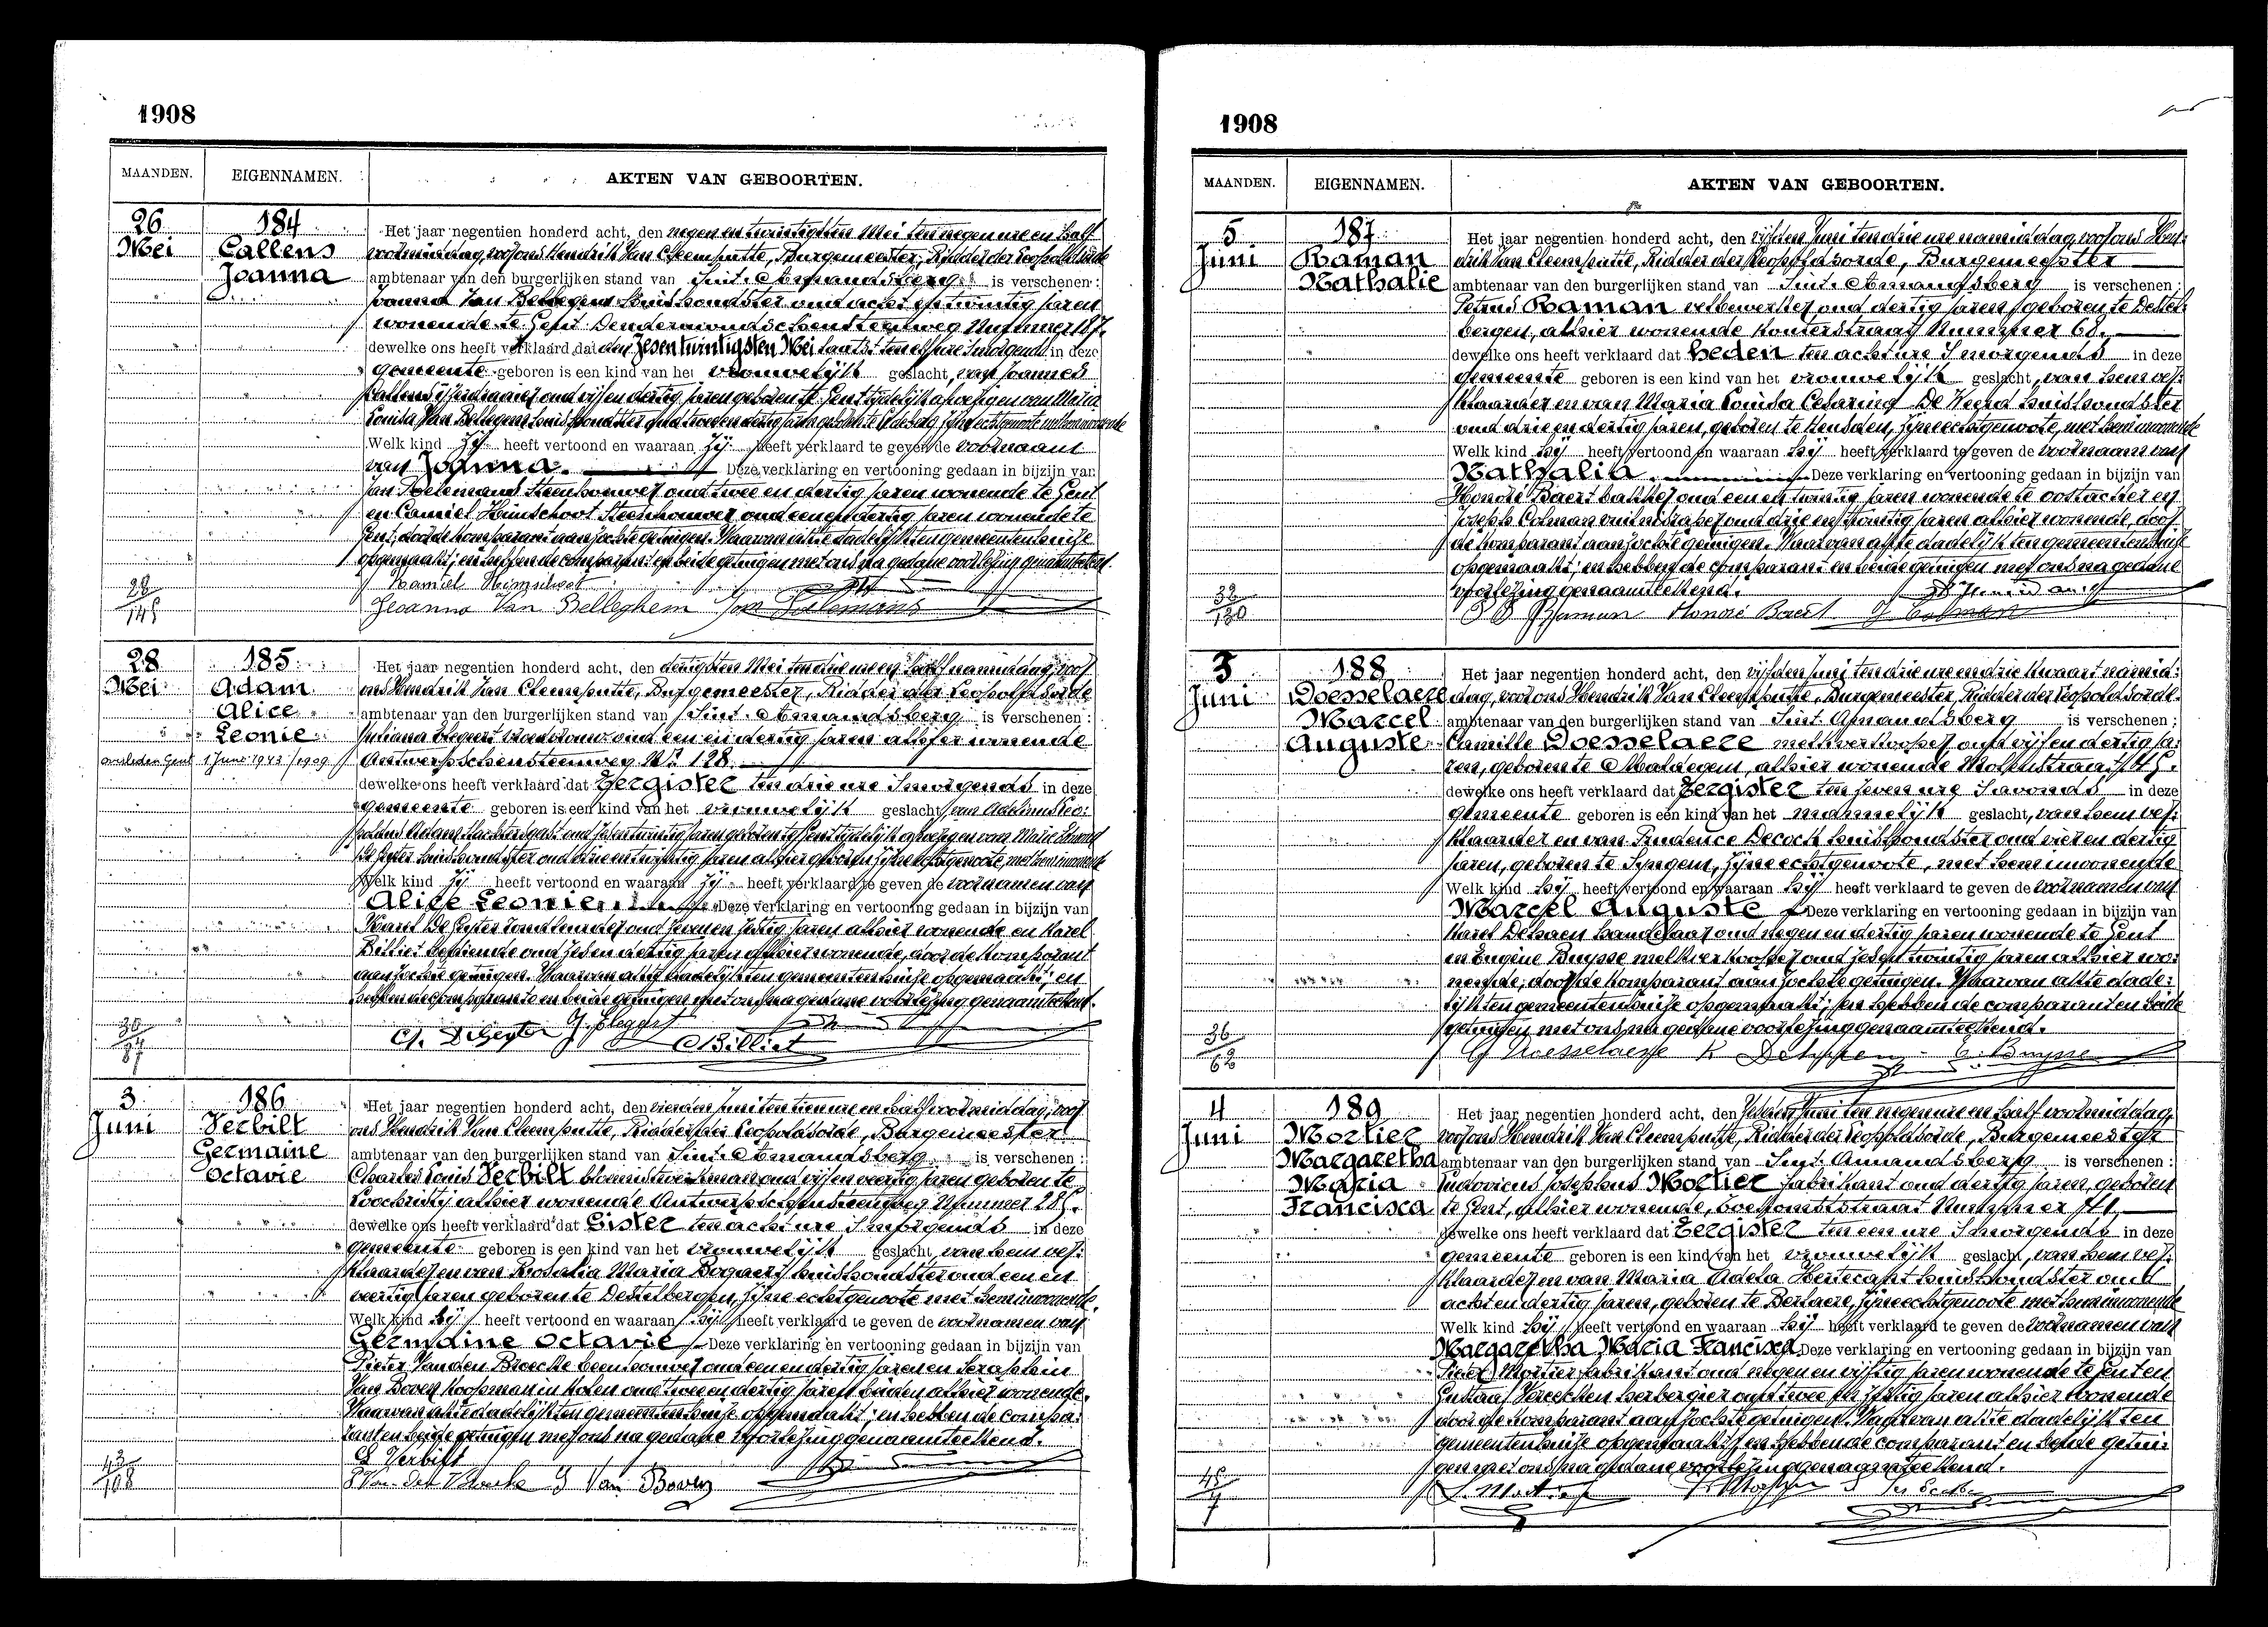 1908
MAANDEN. EIGENNAMEN. AKTEN VAN GEBOORTEN.
26 Mei
184
Callens
Joanna
Het jaar negentien honderd acht, den negen en twintigsten Mei ten negen ure en half
voormiddag, voor ons Hendrik Van Cleemputte, Burgemeester, Ridder der Leopoldsorde
ambtenaar van den burgerlijken stand van Sint-Amandsberg is verschenen:
Joanna Van Bellegem huishoudster oud acht en twintig jaren
wonende te Gent Dendermondschensteenweg Nummer 187.
dewelke ons heeft verklaard dat den zesentwintigsten Mei laatst ten elf ure 's morgends in deze
gemeente geboren is een kind van het vrouwelijk geslacht, van Joannes
Callens oud vijf en dertig jaren geboren te Gent tijdelijk afwezig en van Maria
Louisa Van Bellegem huishoudster oud
Welk kind zij heeft vertoond en waaraan zij heeft verklaard te geven de voornaam
van Joanna. Deze verklaring en vertooning gedaan in bijzijn van
Jan Poelemans Steenhouwer oud twee en dertig jaren wonende te Gent
en Camiel Heimschoot Steenhouwer oud een en dertig jaren wonende te
Gent, door de komparant aanzochte getuigen. Waarvan akte dadelijk ten gemeentenhuize
opgemaakt; en hebben de comparant en beide getuigen met ons na gedane voorlezing genaamteekend.
Joanna Van Belleghem Jan Poelemans
28/145
28 Mei
185
Adam
Alice
Leonie
overleden Gent 1 Juni 1943 / 1909
Het jaar negentien honderd acht, den dertigsten Mei ten drie ure en half namiddag, voor
ons Hendrik Van Cleemputte, Burgemeester, Ridder der Leopoldsorde
ambtenaar van den burgerlijken stand van Sint-Amandsberg is verschenen:
Juliana Elegeert vroedvrouw oud een en dertig jaren alhier wonende
Antwerpschensteenweg Nr. 128.
dewelke ons heeft verklaard dat Eergister ten drie ure 's morgends in deze
gemeente geboren is een kind van het vrouwelijk geslacht, van
oud zes en twintig jaren geboren te Gent tijdelijk afwezig en van Marie
De Geyter huishoudster oud drie en twintig jaren alhier geboren zijne echtgenoote, met hem inwonende
Welk kind zij heeft vertoond en waaraan zij heeft verklaard te geven de voornamen van
Alice Leonie. Deze verklaring en vertooning gedaan in bijzijn van
Karel De Geyter landbouwer oud zeven en zestig jaren alhier wonende en Karel
Billiet bediende oud zes en dertig jaren alhier wonende, door de komparant
aanzochte getuigen. Waarvan akte dadelijk ten gemeentenhuize opgemaakt; en
hebben de comparante en beide getuigen met ons na gedane voorlezing genaamteekend.
C. DeGeyter J. Elegeert C Billiet
30/87
3 Juni
186
Verbilt
Germaine
Octavie
Het jaar negentien honderd acht, den vierden Juni ten tien ure en half voormiddag, voor
ons Hendrik Van Cleemputte, Ridder der Leopoldsorde, Burgemeester
ambtenaar van den burgerlijken stand van Sint-Amandsberg is verschenen:
Charles Louis Verbilt bloemist werkman oud vijf en veertig jaren geboren te
Loochristij alhier wonende Antwerpschensteenweg Nummer 285.
dewelke ons heeft verklaard dat Gister ten acht ure 's morgends in deze
gemeente geboren is een kind van het vrouwelijk geslacht, van hem ver=
klaarder en van Rosalia Maria Bogaert huishoudster oud een en
veertig jaren geboren te Destelbergen, zijne echtgenoote met hem inwonende.
Welk kind hij heeft vertoond en waaraan hij heeft verklaard te geven de voornamen van
Germaine Octavie Deze verklaring en vertooning gedaan in bijzijn van
Pieter Vanden Broecke beenhouwer oud een en dertig jaren en Seraphin
Van Boven koopman in kolen oud twee en dertig jaren beiden alhier wonende.
Waarvan akte dadelijk ten gemeentenhuize opgemaakt; en hebben de compa=
rant en beide getuigen met ons na gedane voorlezing genaamteekend.
C Verbilt
P Van den Broecke S Van Boven
43/108
1908
MAANDEN. EIGENNAMEN. AKTEN VAN GEBOORTEN.
5 Juni
187
Raman
Nathalie
Het jaar negentien honderd acht, den vijfden Juni ten drie ure namiddag, voor ons Hen=
drik Van Cleemputte, Ridder der Leopoldsorde, Burgemeester
ambtenaar van den burgerlijken stand van Sint-Amandsberg is verschenen:
Petrus Raman velbewerker oud dertig jaren, geboren te Destel=
bergen, alhier wonende Kouterstraat Nummer 68.
dewelke ons heeft verklaard dat heden ten acht ure 's morgends in deze
gemeente geboren is een kind van het vrouwelijk geslacht, van hem ver=
klaarder en van Maria Louisa Cesarina De Weird huishoudster
oud drie en dertig jaren, geboren te Heusden, zijne echtgenoote, met hem inwonende
Welk kind hij heeft vertoond en waaraan hij heeft verklaard te geven de voornaam van
Nathalia. Deze verklaring en vertooning gedaan in bijzijn van
Honoré Baert bakker oud een en twintig jaren wonende te Oostacker en
Joseph Colman oud drie en twintig jaren alhier wonende, door
de komparant aanzochte getuigen. Waarvan akte dadelijk ten gemeentenhuize
opgemaakt; en hebben de comparant en beide getuigen met ons na gedane
voorlezing genaamteekend.
P Raman Honoré Baert J Colman
32/130
3 Juni
188
Doesselaere
Marcel
Auguste
Het jaar negentien honderd acht, den vijfden Juni ten drie ure en drie kwaart namid=
dag, voor ons Hendrik Van Cleemputte, Burgemeester, Ridder der Leopoldsorde.
ambtenaar van den burgerlijken stand van Sint Amandsberg is verschenen:
Camille Doesselaere melkverkooper oud vijf en dertig ja=
ren, geboren te Maldegem, alhier wonende Molenstraat
dewelke ons heeft verklaard dat Eergister ten zeven ure 's avonds in deze
gemeente geboren is een kind van het mannelijk geslacht, van hem ver=
klaarder en van Prudence Decock huishoudster oud vier en dertig
jaren, geboren te Syngem, zijne echtgenoote, met hem inwonende
Welk kind hij heeft vertoond en waaraan hij heeft verklaard te geven de voornamen van
Marcel Auguste Deze verklaring en vertooning gedaan in bijzijn van
Karel Dehaen handelaar oud negen en dertig jaren wonende te Gent
en Eugène Buysse melkverkooper oud zes en twintig jaren alhier wo=
nende; door de komparant aanzochte getuigen. Waarvan akte dade=
lijk ten gemeentenhuize opgemaakt; en hebben de comparant en beide
getuigen met ons na gedane voorlezing genaamteekend.
C Doesselaere K E. Buysse
36/62
4 Juni
189
Mortier
Margaretha
Maria
Francisca
Het jaar negentien honderd acht, den zesden Juni ten negen ure en half voormiddag,
voor ons Hendrik Van Cleemputte, Ridder der Leopoldsorde, Burgemeester
ambtenaar van den burgerlijken stand van Sint Amandsberg is verschenen:
Ludovicus Josephus Mortier fabrikant oud dertig jaren, geboren
te Gent, alhier wonende, Toekomststraat Nummer
dewelke ons heeft verklaard dat Eergister ten een ure 's morgends in deze
gemeente geboren is een kind van het vrouwelijk geslacht, van hem ver=
klaarder en van Maria Adela Hertecant huishoudster oud
acht en dertig jaren, geboren te Berlaere, zijne echtgenoote met hem inwonende
Welk kind hij heeft vertoond en waaraan hij heeft verklaard te geven de voornamen van
Margaretha Maria Francisca Deze verklaring en vertooning gedaan in bijzijn van
Pieter Mortier fabrikant oud negen en vijftig jaren wonende te Gent en
Gustaaf Vereecken herbergier oud twee en zestig jaren alhier wonende
door de komparant aanzochte getuigen. Waarvan akte dadelijk ten
gemeentenhuize opgemaakt; en hebben de comparant en beide getui=
gen met ons na gedane voorlezing genaamteekend.